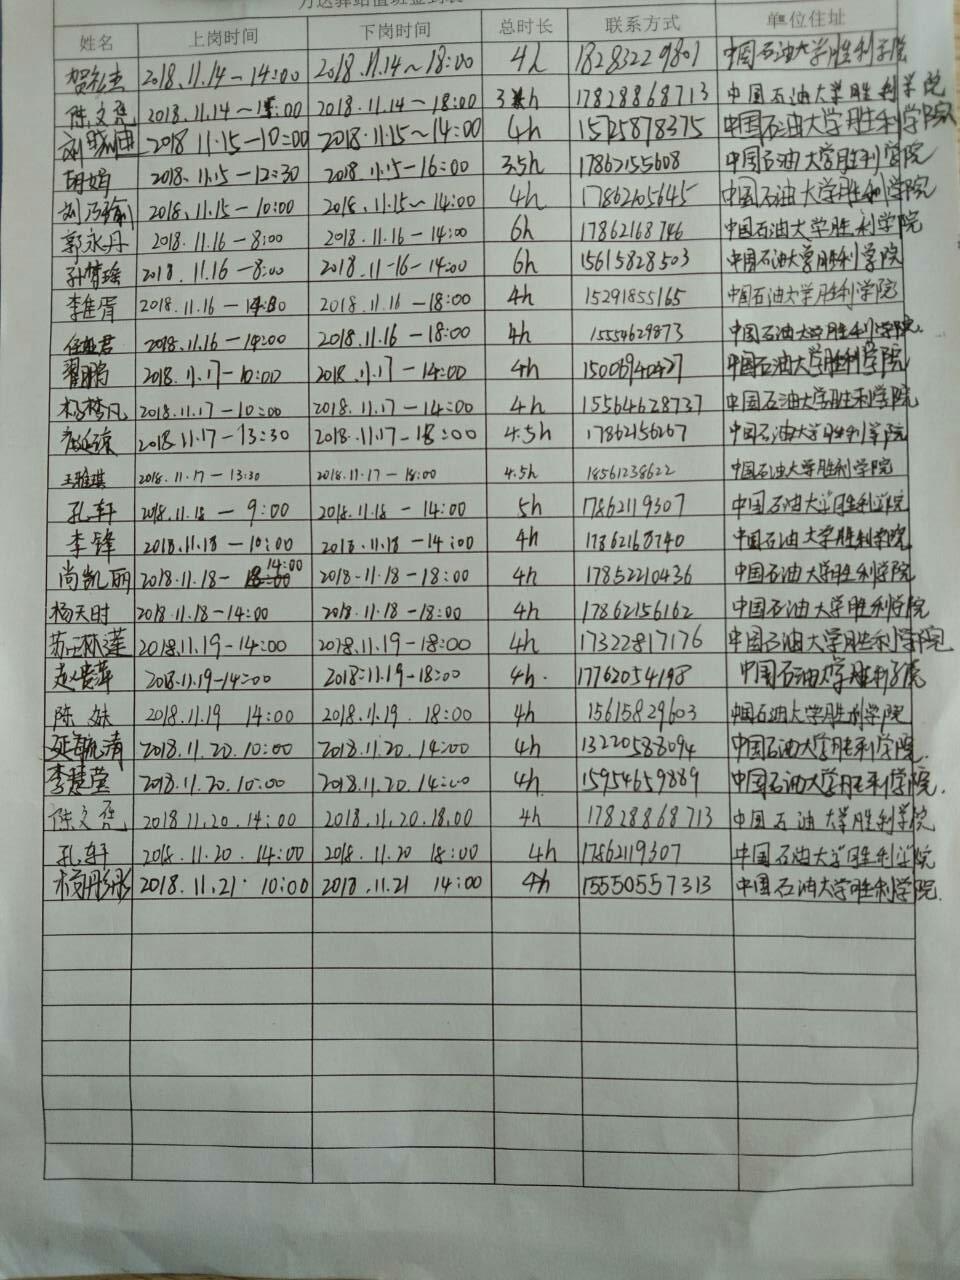 万达驿站值班签到表
姓名 上岗时间 下岗时间 总时长 联系方式 单位住址
2018.11.14-14:00 2018.11.14~18:00 4h 18283229801 中国石油大学胜利学院
陈文亮 2018.11.14~15:00 2018.11.14-18:00 3h 17828868713 中国石油大学胜利学院
刘晓迪 2018 11.15-10:00 2018 11.15~14:00 4h 15725878375 中国石油大学胜利学院
胡娟 2018.11.15-12:30 2018.11.15-16:00 3.5h 17862155608 中国石油大学胜利学院
2018.11.15-10:00 2018.11.15~14:00 4h 17862105645 中国石油大学胜利学院
郭永丹 2018.11.16-8:00 2018.11.16-14:00 6h 17862168746 中国石油大学胜利学院
孙梦瑶 2018.11.16-8:00 2018.11-16-14:00 6h 15615828503 中国石油大学胜利学院
李佳眉 2018.11.16-14:00 2018.11.16-18:00 4h 15291855165 中国石油大学胜利学院
2018.11.16-14:00 2018.11.16-18:00 4h 15554629873 中国石油大学胜利学院.
翟鹏 2018.11.17-10:00 2018.11.17-14:00 4h 中国石油大学胜利学院
杨梦凡 2018.11.17-10:00 2018.11.17-14:00 4h 15564628737 中国石油大学胜利学院
2018.11.17-13:30 2018.11.17-18:00 4.5h 17862156267 中国石油大学胜利学院
王雅琪 2018.11.17-13:30 2018.11.17-18:00 4.5h 18561238622 中国石油大学胜利学院
孔轩 2018.11.18-9:00 2018.11.18-14:00 5h 17862119307 中国石油大学胜利学院
李锋 2018.11.18-10:00 2018.11.18-14:00 4h 17862168740 中国石油大学胜利学院
尚凯丽 2018.11.18-14:00 2018.11.18-18:00 4h 17852210436 中国石油大学胜利学院
杨天时 2018.11.18-14:00 2018.11.18-18:00 4h 17862156162 中国石油大学胜利学院
2018.11.19-14:00 2018.11.19-18:00 4h 17322817176 中国石油大学胜利学院
2018.11.19-14:00 2018.11.19-18:00 4h. 17762054198 中国石油大学胜利学院
陈妹 2018.11.19 14:00 2018.11.19.18:00 4h 15615829603 中国石油大学胜利学院
延毓清 2018.11.20.10:00 2018.11.20.14:00 4h 13220583094 中国石油大学胜利学院.
李楚莹 2018.11.20.10:00 2018.11.20.14:00 4h 15954659889 中国石油大学胜利学院.
陈文亮 2018.11.20.14:00 2018.11.20.18.00 4h 17828868713 中国石油大学胜利学院
孔轩 2018.11.20.14:00 2018.11.20 18:00 4h 17862119307 中国石油大学胜利学院
2018.11.21.10:00 2018.11.21 14:00 4h 15550557313 中国石油大学胜利学院.